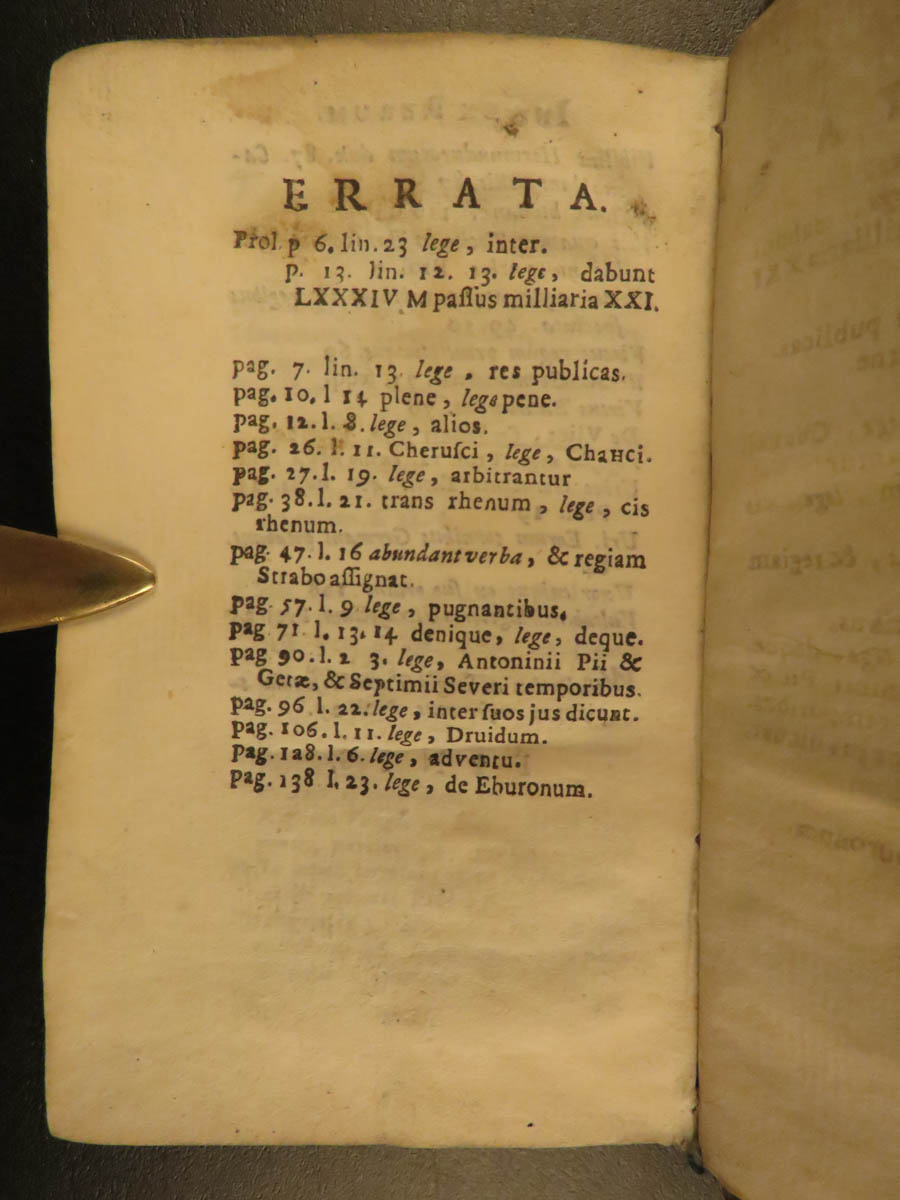 ERRATA.
Prol p 6. lin. 23 lege, inter.
p. 13. lin. 12. 13. lege, dabunt
LXXXIV M paſſus milliaria XXI.
pag. 7. lin. 13. lege . res publicas.
pag. 10. l 14 plene, lege pene.
pag. 12. l. 8. lege, alios.
pag. 26. l. 11. Cheruſci, lege, Chauci.
pag. 27. l. 19. lege, arbitrantur
pag. 38. l. 21. trans rhenum, lege, cis
rhenum.
pag. 47. l. 16 abundant verba, & regiam
Strabo aſſignat.
pag. 57. l. 9 lege, pugnantibus.
pag 71 l. 13. 14 denique, lege, deque.
pag 90. l. 2 3. lege, Antoninii Pii &
Getæ, & Septimii Severi temporibus.
pag. 96 l. 22. lege, inter ſuos jus dicunt.
pag. 106. l. 11. lege, Druidum.
pag. 128. l. 6. lege, adventu.
pag. 138 l. 23. lege, de Eburonum.